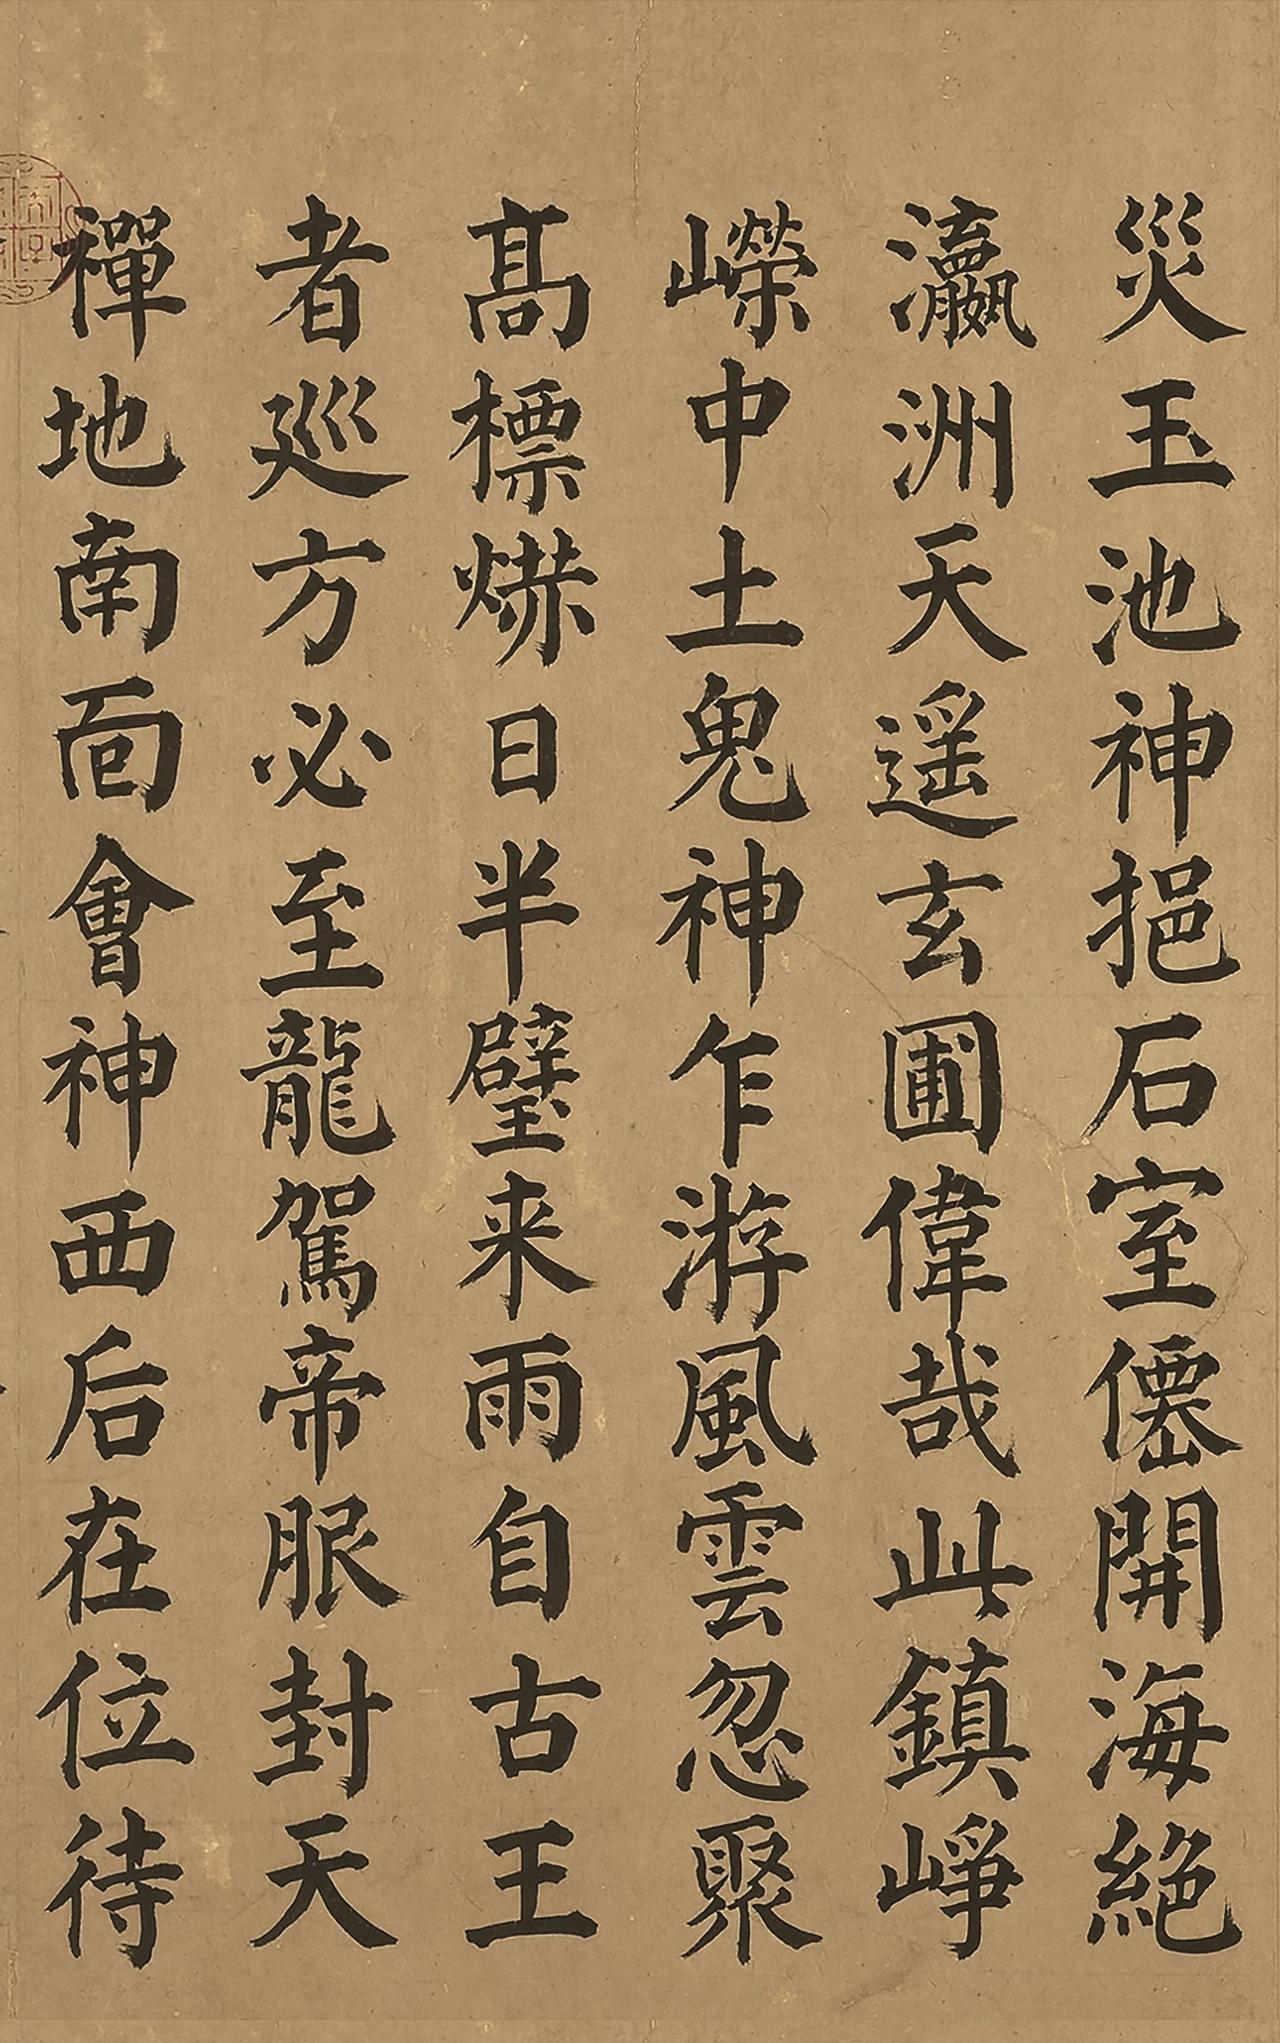 災玉池神挹石室僊開海絶
瀛洲天遥玄圃偉哉此鎮崢
嶸中土鬼神乍游風雲忽聚
髙標爀日半壁来雨自古王
者巡方必至龍駕帝服封天
禪地南面會神西后在位待